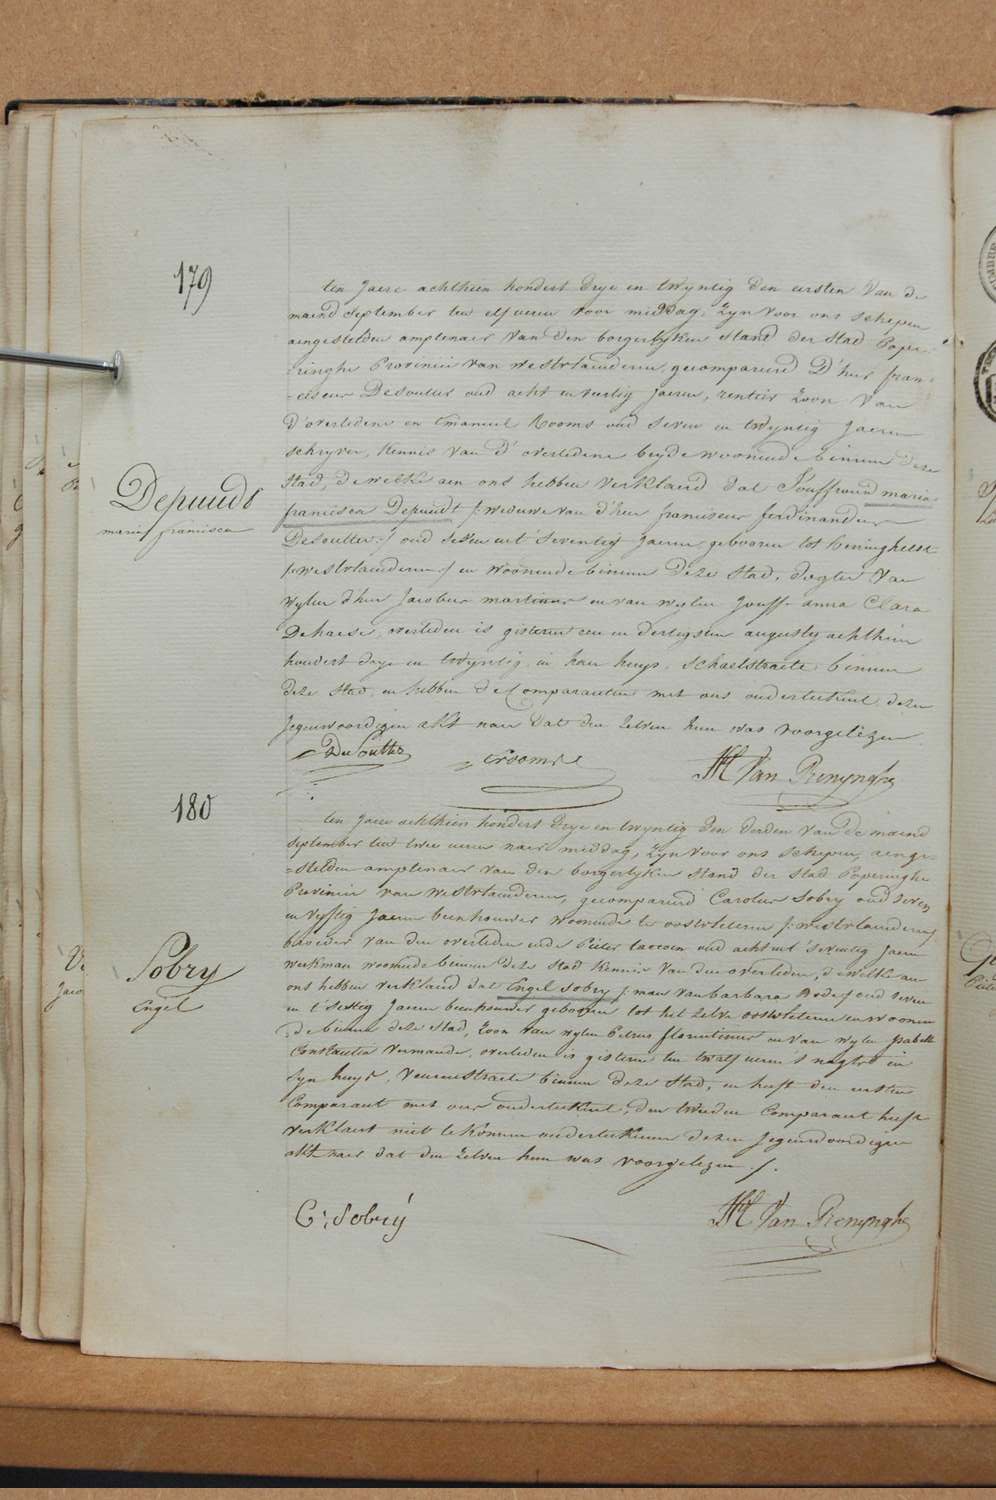 179
ten jaere achthien hondert drye en twyntig den eersten van de
maend september ten elf ueren voor middag, zyn voor ons schepen
aengestelden amptenaer van den borgerlyken stand der stad Pope-
ringhe Provincie van westvlaenderen, gecompareerd D'heer fran-
-ciscus Desoutter oud acht en veertig jaeren, rentier zoon van
d'overledene en Emanuel Rooms oud seven en twyntig jaeren
schryver, kennis van d'overledene beyde woonende binnen deze
stad, dewelke aen ons hebben verklaerd dat Jouffrauw maria
Depuudt
maria francisca
francisca Depuudt /: weduwe van d'heer franciscus ferdinandus
Desoutter :/ oud seven en t'seventig jaeren, gebooren tot Reninghelst
/: westvlaenderen :/ en woonende binnen deze stad, dogter van
wylen d'heer Jacobus martinus en van wylen jouff. anna Clara
Dehaese, overleden is gisteren een en dertigsten augusty achthien
hondert drye en twyntig in haer huys, schaelstraete binnen
deze stad, en hebben de Comparanten met ons onderteekent dezen
jegenwoordigen akt naer dat den zelven hun was voorgelezen
DeSoutter erooms JM Van Renynghe
180
ten jaere achthien hondert drye en twyntig den derden van de maend
september ten twee ueren naer middag, zyn voor ons schepen, aenge-
=stelden amptenaer van den borgerlyken stand der stad Poperinghe
Provincie van westvlaenderen, gecompareerd Carolus Sobry oud seven
en vyftig jaeren beenhouwer woonende te oostvleteren /: westvlaenderen /
broeder van den overleden ende Pieter taccoen oud acht en t'seventig jaeren
Sobry
Engel
werkman woonende binnen deze stad kennis van den overleden, dewelke aen
ons hebben verklaerd dat Engel Sobry /: man van barbara Bode / oud seven
en t'sestig jaeren beenhouwer gebooren tot het zelve oostvleteren en woonen
=de binnen deze stad, zoon van wylen Petrus florentinus en van wylen Isabelle
Constantia vermande, overleden is gisteren ten twalf ueren 's nagts in
syn huys, veurnestraete binnen deze stad, en heeft den eersten
Comparant met ons onderteekent, den tweeden Comparant heeft
verklaert niet te konnen onderteekenen dezen jegenwoordigen
akt naer dat den zelven hun was voorgelezen ./.
C: Sobrÿ JM Van Renynghe